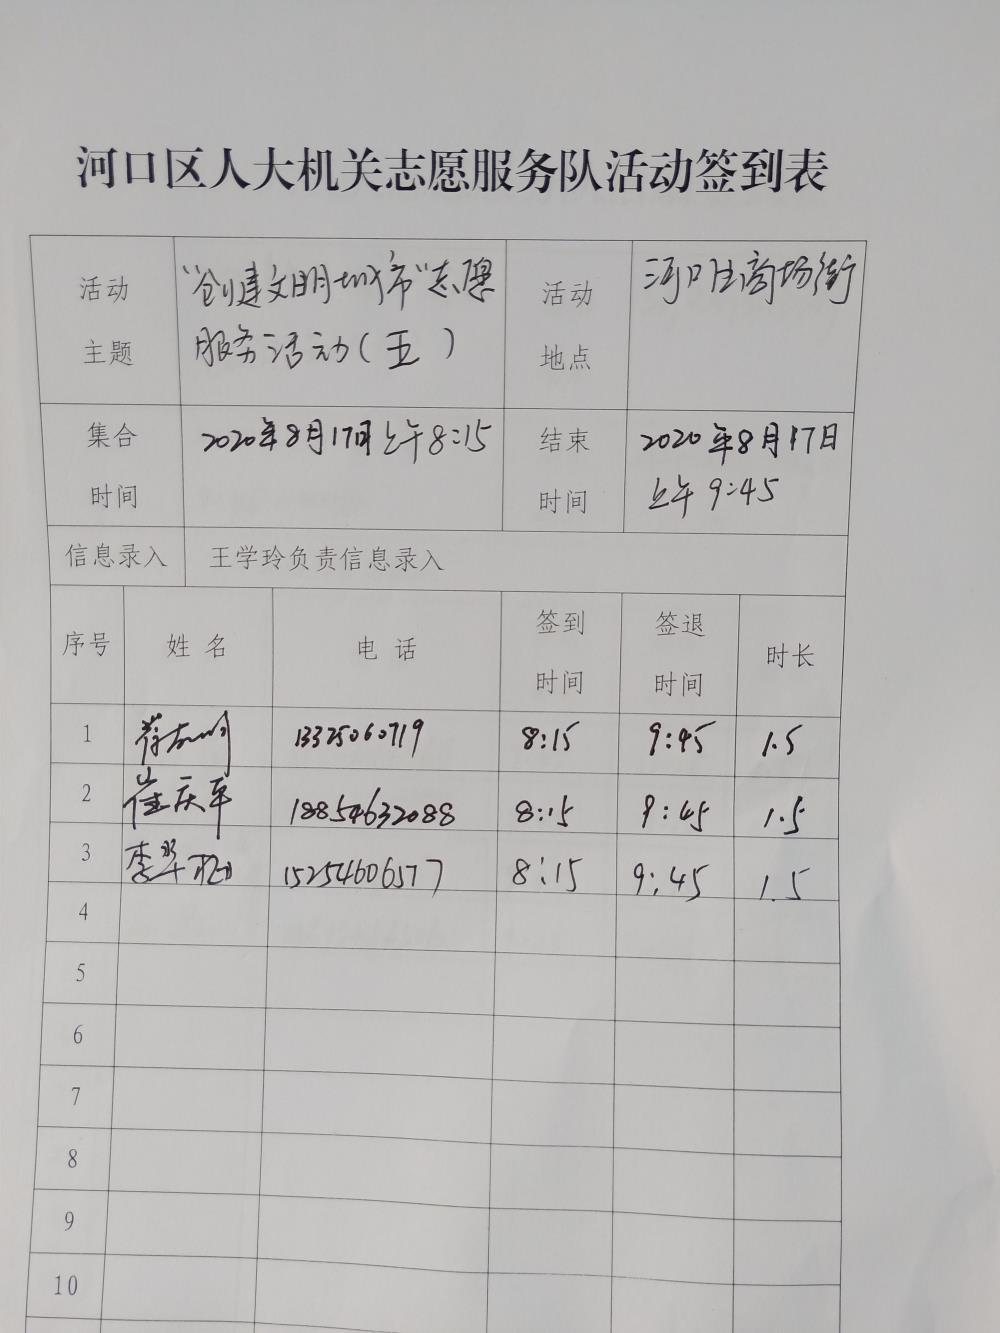 河口区人大机关志愿服务队活动签到表
活动主题 "创建文明城市"志愿服务活动(五) 活动地点 河口区商场街
集合时间 2020年8月17日上午8:15 结束时间 2020年8月17日上午9:45
信息录入 王学玲负责信息录入
序号 姓名 电话 签到时间 签退时间 时长
1 13325060719 8:15 9:45 1.5
2 崔庆军 18854632088 8:15 9:45 1.5
3 李翠 15254606577 8:15 9:45 1.5
4
5
6
7
8
9
10